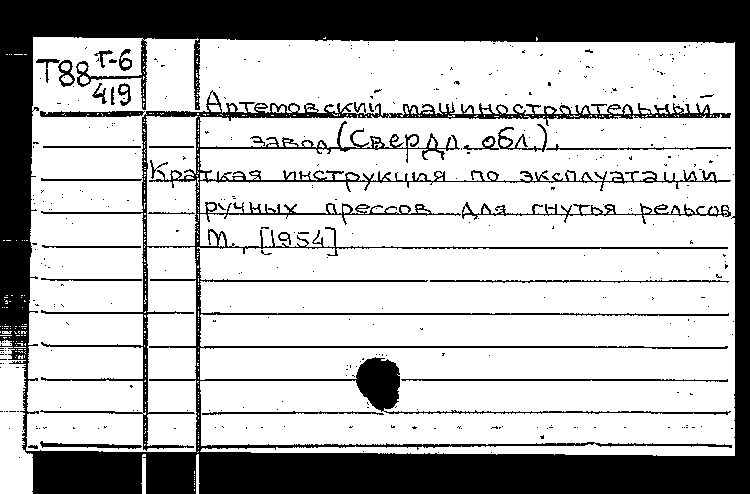 Т88 Т-6
419
Артемовский машиностроительный
завод (Свердл. обл.).
Краткая инструкция по эксплуатации
ручных прессов для гнутья рельсов
М., [1954]